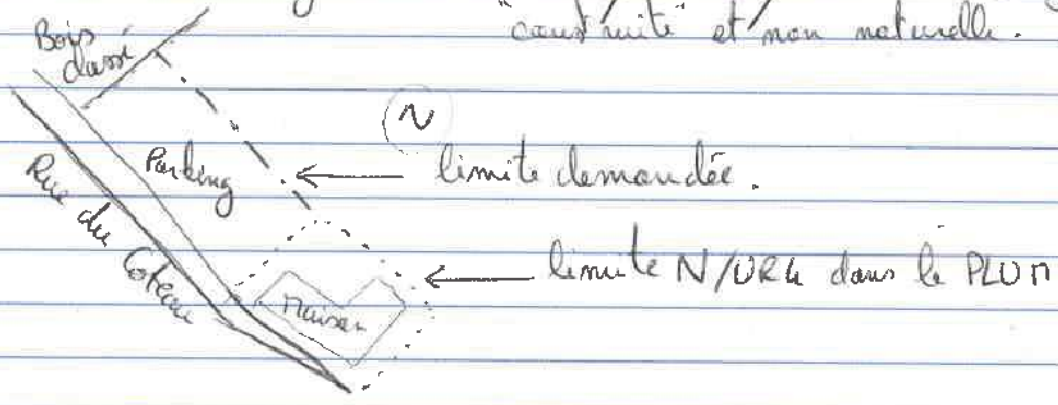 "construite" et non naturelle.
Bois
classé
N
Parking
limite demandée.
Rue du Coteau
limite N/URh dans le PLUM
maison